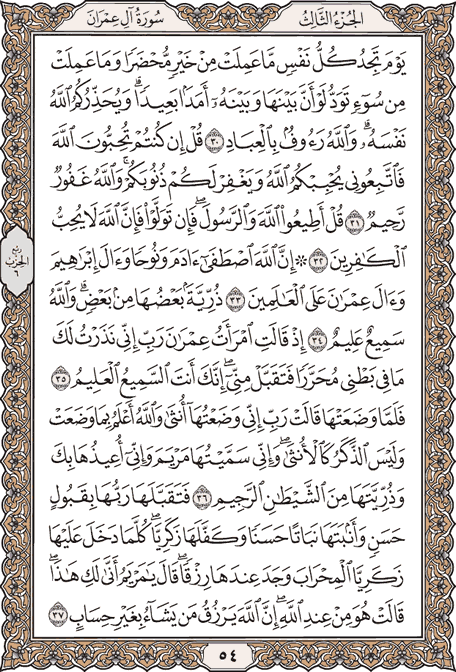 سُورَةُ آلِ عِمْرَانَ
الجُزْءُ الثَّالِثُ
يَوْمَ تَجِدُ كُلُّ نَفْسٍ مَّا عَمِلَتْ مِنْ خَيْرٍ مُّحْضَرًا وَمَا عَمِلَتْ
مِن سُوٓءٍ تَوَدُّ لَوْ أَنَّ بَيْنَهَا وَبَيْنَهُۥٓ أَمَدَۢا بَعِيدًاۗ وَيُحَذِّرُكُمُ ٱللَّهُ
نَفْسَهُۥۗ وَٱللَّهُ رَءُوفُۢ بِٱلْعِبَادِ ٣٠ قُلْ إِن كُنتُمْ تُحِبُّونَ ٱللَّهَ
فَٱتَّبِعُونِى يُحْبِبْكُمُ ٱللَّهُ وَيَغْفِرْ لَكُمْ ذُنُوبَكُمْۗ وَٱللَّهُ غَفُورٌ
رَّحِيمٌ ٣١ قُلْ أَطِيعُوا۟ ٱللَّهَ وَٱلرَّسُولَۖ فَإِن تَوَلَّوْا۟ فَإِنَّ ٱللَّهَ لَا يُحِبُّ
ٱلْكَٰفِرِينَ ٣٢ ۞ إِنَّ ٱللَّهَ ٱصْطَفَىٰٓ ءَادَمَ وَنُوحًا وَءَالَ إِبْرَٰهِيمَ
وَءَالَ عِمْرَٰنَ عَلَى ٱلْعَٰلَمِينَ ٣٣ ذُرِّيَّةَۢ بَعْضُهَا مِنۢ بَعْضٍۗ وَٱللَّهُ
سَمِيعٌ عَلِيمٌ ٣٤ إِذْ قَالَتِ ٱمْرَأَتُ عِمْرَٰنَ رَبِّ إِنِّى نَذَرْتُ لَكَ
مَا فِى بَطْنِى مُحَرَّرًا فَتَقَبَّلْ مِنِّىٓۖ إِنَّكَ أَنتَ ٱلسَّمِيعُ ٱلْعَلِيمُ ٣٥
فَلَمَّا وَضَعَتْهَا قَالَتْ رَبِّ إِنِّى وَضَعْتُهَآ أُنثَىٰ وَٱللَّهُ أَعْلَمُ بِمَا وَضَعَتْ
وَلَيْسَ ٱلذَّكَرُ كَٱلْأُنثَىٰۖ وَإِنِّى سَمَّيْتُهَا مَرْيَمَ وَإِنِّىٓ أُعِيذُهَا بِكَ
وَذُرِّيَّتَهَا مِنَ ٱلشَّيْطَٰنِ ٱلرَّجِيمِ ٣٦ فَتَقَبَّلَهَا رَبُّهَا بِقَبُولٍ
حَسَنٍ وَأَنۢبَتَهَا نَبَاتًا حَسَنًا وَكَفَّلَهَا زَكَرِيَّاۖ كُلَّمَا دَخَلَ عَلَيْهَا
زَكَرِيَّا ٱلْمِحْرَابَ وَجَدَ عِندَهَا رِزْقًاۖ قَالَ يَٰمَرْيَمُ أَنَّىٰ لَكِ هَٰذَاۖ
قَالَتْ هُوَ مِنْ عِندِ ٱللَّهِۖ إِنَّ ٱللَّهَ يَرْزُقُ مَن يَشَآءُ بِغَيْرِ حِسَابٍ ٣٧
ربع
الحزب
٦
٥٤